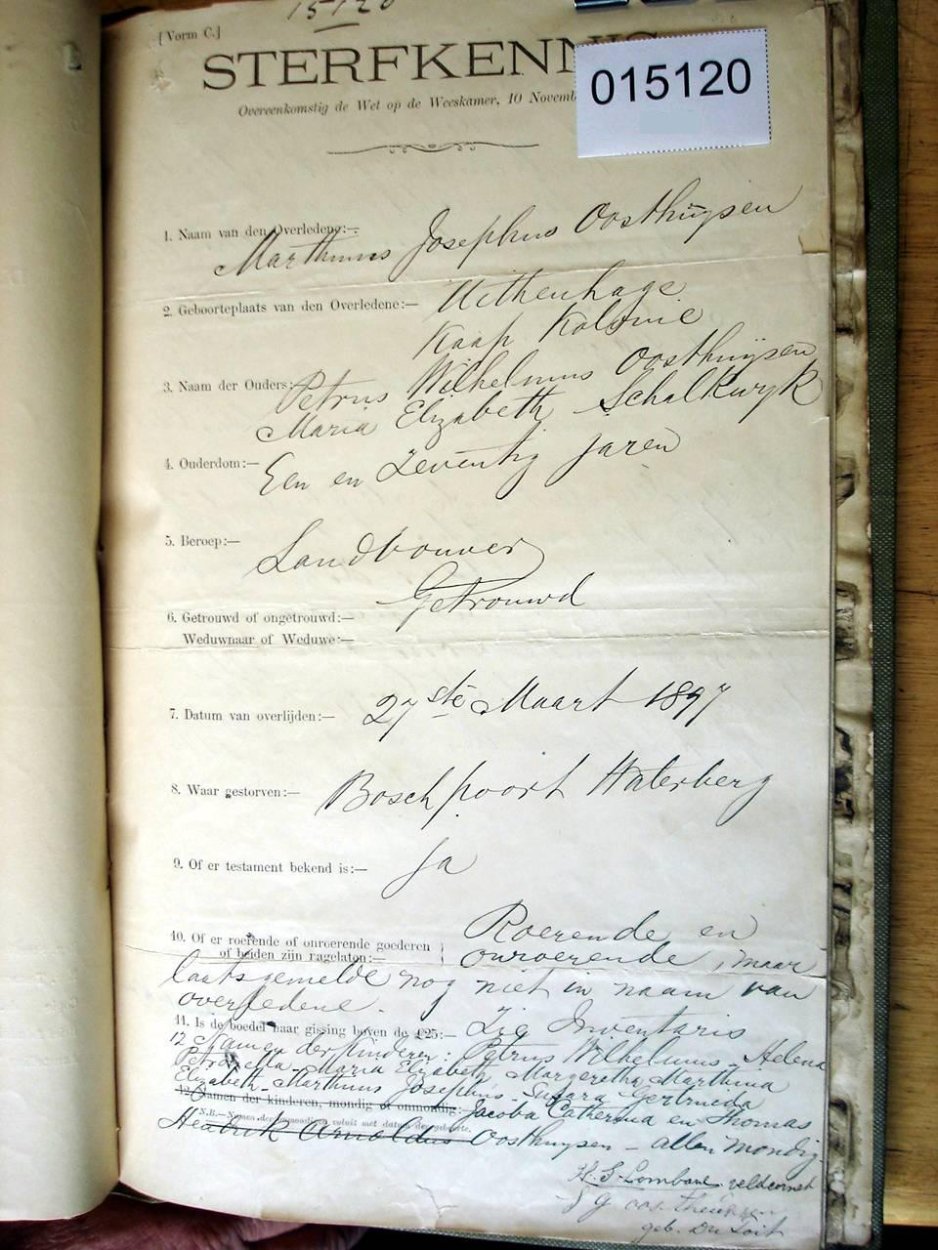 15120
[Vorm C.]
STERFKENNIS
015120
Overeenkomstig de Wet op de Weeskamer, 10 Novemb
1. Naam van den Overledene:—
Marthinus Josephus Oosthuysen
2. Geboorteplaats van den Overledene:— Uithenhage
Kaap Kolonie
3. Naam der Ouders: Petrus Wilhelmus Oosthuijsen
Maria Elizabeth Schalkwyk
4. Ouderdom:— Een en Zeventig jaren
5. Beroep:— Landbouwer
6. Getrouwd of ongetrouwd:— Getrouwd
Weduwnaar of Weduwe:—
7. Datum van overlijden:— 27ste Maart 1897
8. Waar gestorven:— Boschpoort Waterberg
9. Of er testament bekend is:— Ja
10. Of er roerende of onroerende goederen Roerende en
of beiden zijn nagelaten:— onroerende, maar
laatsgemelde nog niet in naam van
overledene.
11. Is de boedel naar gissing boven de £25:— Zie Inventaris
12 Namen der Kinderen: Petrus Wilhelmus - Helena
Petronella - Maria Elizabeth, Margeretha Marthina
Elizabeth - Marthinus Josephus - Susara Gertrueda
12. Namen der kinderen, mondig of onmondig:— Jacoba Catherina en Thomas
N.B.—Namen der onmondigen voluit met datum der geboorte.
Hendrik Arnoldus Oosthuysen - allen mondig.
veldcornet
geb. Du Toit